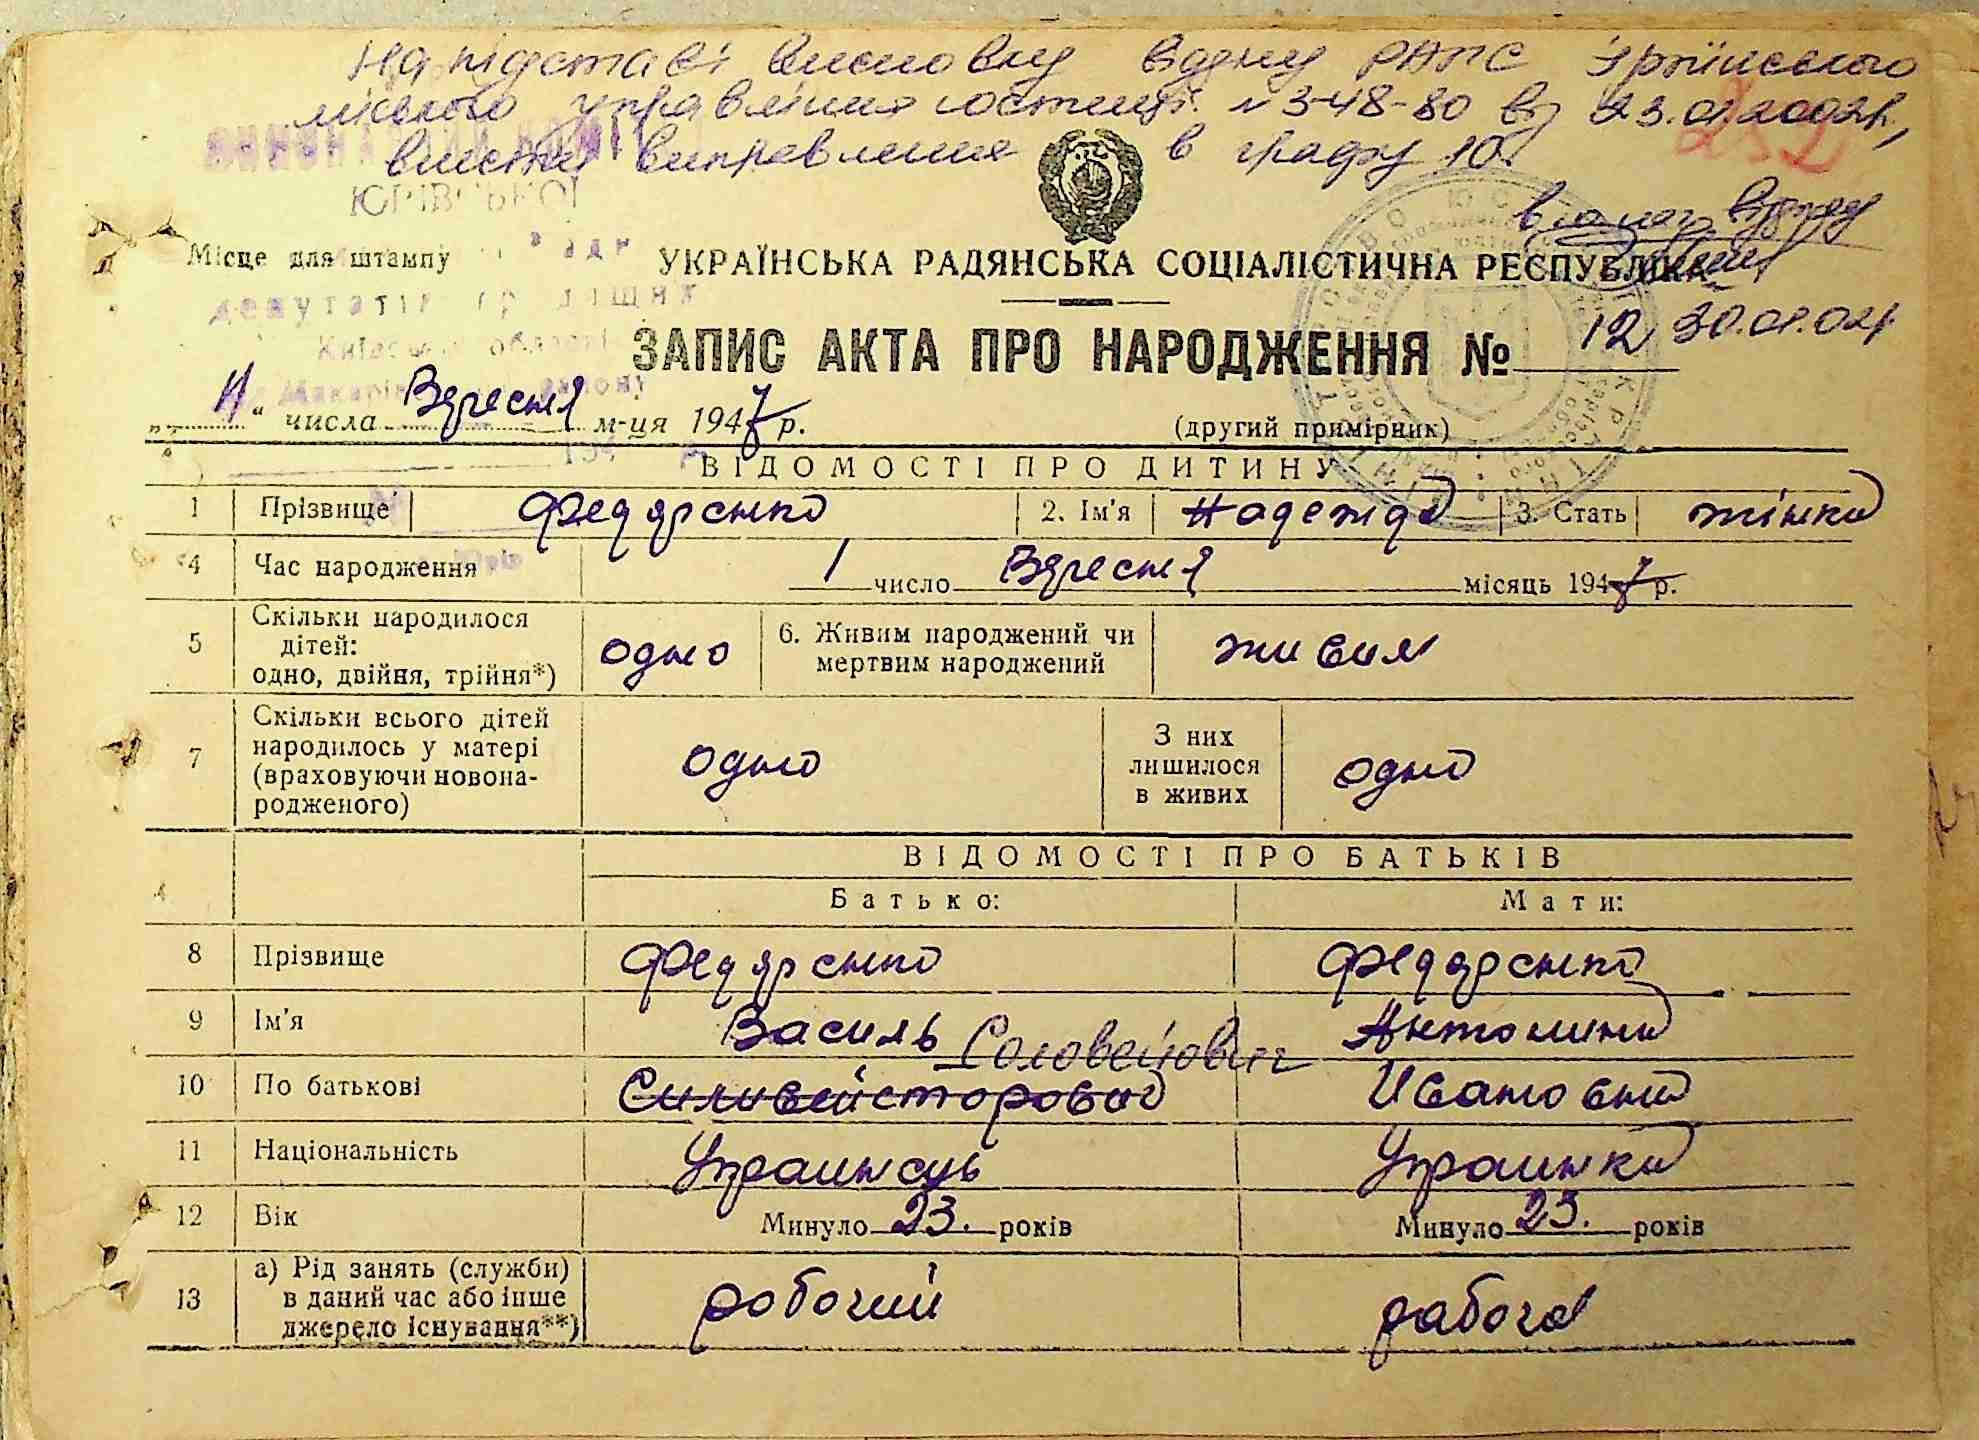 На підставі висновку відділу РАГС Ірпінського
міського управління юстиції N 3-48-80 від 23.01.2002р,
внести виправлення в графу 10.
ЮРІВСЬКОЇ
Місце для штампу
УКРАЇНСЬКА РАДЯНСЬКА СОЦІАЛІСТИЧНА РЕСПУБЛІКА
депутатів трудящих
Київської області
ЗАПИС АКТА ПРО НАРОДЖЕННЯ № 12
30.01.02р
Макарівського району
"11" числа Вересня м-ця 1947 р.
(другий примірник)
ВІДОМОСТІ ПРО ДИТИНУ
1 Прізвище Федяренко 2. Ім'я Надежда 3. Стать жінка
4 Час народження 1 число Вересня місяць 1947 р.
5 Скільки народилося дітей: одно, двійня, трійня*) одно 6. Живим народжений чи мертвим народжений живим
7 Скільки всього дітей народилось у матері (враховуючи новона-родженого) одно З них лишилося в живих одно
ВІДОМОСТІ ПРО БАТЬКІВ
Батько: Мати:
8 Прізвище Федяренко Федяренко
9 Ім'я Василь Антонина
Соловейович
10 По батькові Силивейстрович Ивановна
11 Національність Украинець Украинка
12 Вік Минуло 23. років Минуло 23. років
13 а) Рід занять (служби) в даний час або інше джерело існування**) робочий рабоча